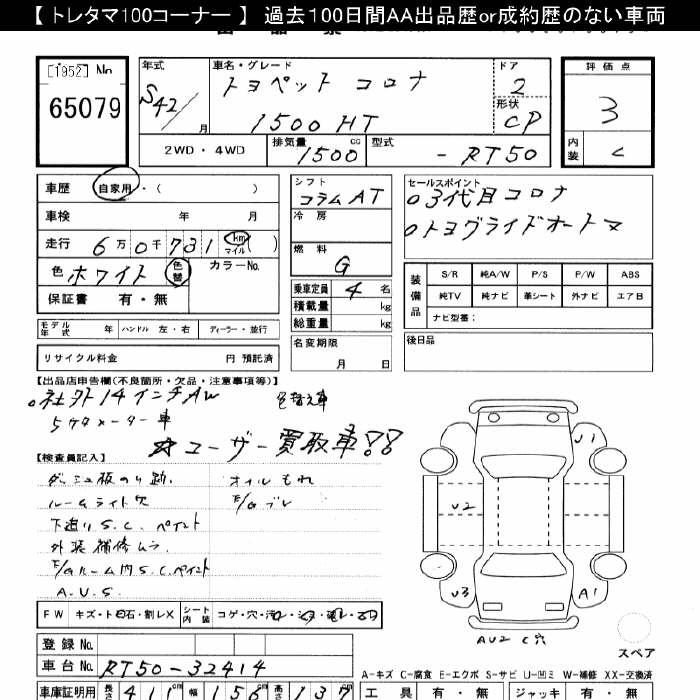 【 トレタマ100コーナー 】 過去100日間AA出品歴or成約歴のない車両
[1952] No 65079
年式 S42/ 月
車名・グレード トヨペット コロナ
1500 HT
ドア 2
形状 CP
評価点 3
内装 C
2WD・4WD
排気量 1500 cc
型式 - RT50
車歴 自家用・( )
車検 年 月
走行 6万0千731 km マイル ( )
色 ホワイト 色替 カラーNo.
保証書 有・無
シフト コラムAT
冷房
燃料 G
乗車定員 4 名
積載量 kg
総重量 kg
名変期限
月 日
セールスポイント
o3代目コロナ
oトヨグライドオートマ
装備品
S/R 純A/W P/S P/W ABS
純TV 純ナビ 革シート 外ナビ エアB
ナビ型番:
後日品
モデル年式 年 ハンドル 左・右 ディーラー・並行
リサイクル料金 円 預託済
【出品店申告欄(不良箇所・欠品・注意事項等)】
o社外14インチAW 色替え車
5ケタメーター車
☆ユーザー買取車!!
【検査員記入】
ダッシュ板のり跡. オイルもれ
ルームライト欠 F/Gブレ
下廻りS.C. ペイント
外装補修ムラ.
F/Gルーム内S.C.ペイント
A.U.S.
FW キズ・ト
石・割レX
シート内装 コゲ・穴・
登録No.
車台No. RT50-32414
車庫証明用 長さ 411 cm 幅 156 cm 高さ 137
J1
U2
U3
A1
AU2 C穴
スペア
A-キズ C-腐食 E-エクボ S-サビ U-凹ミ W-補修 XX-交換済
工具 有・無 ジャッキ 有・無